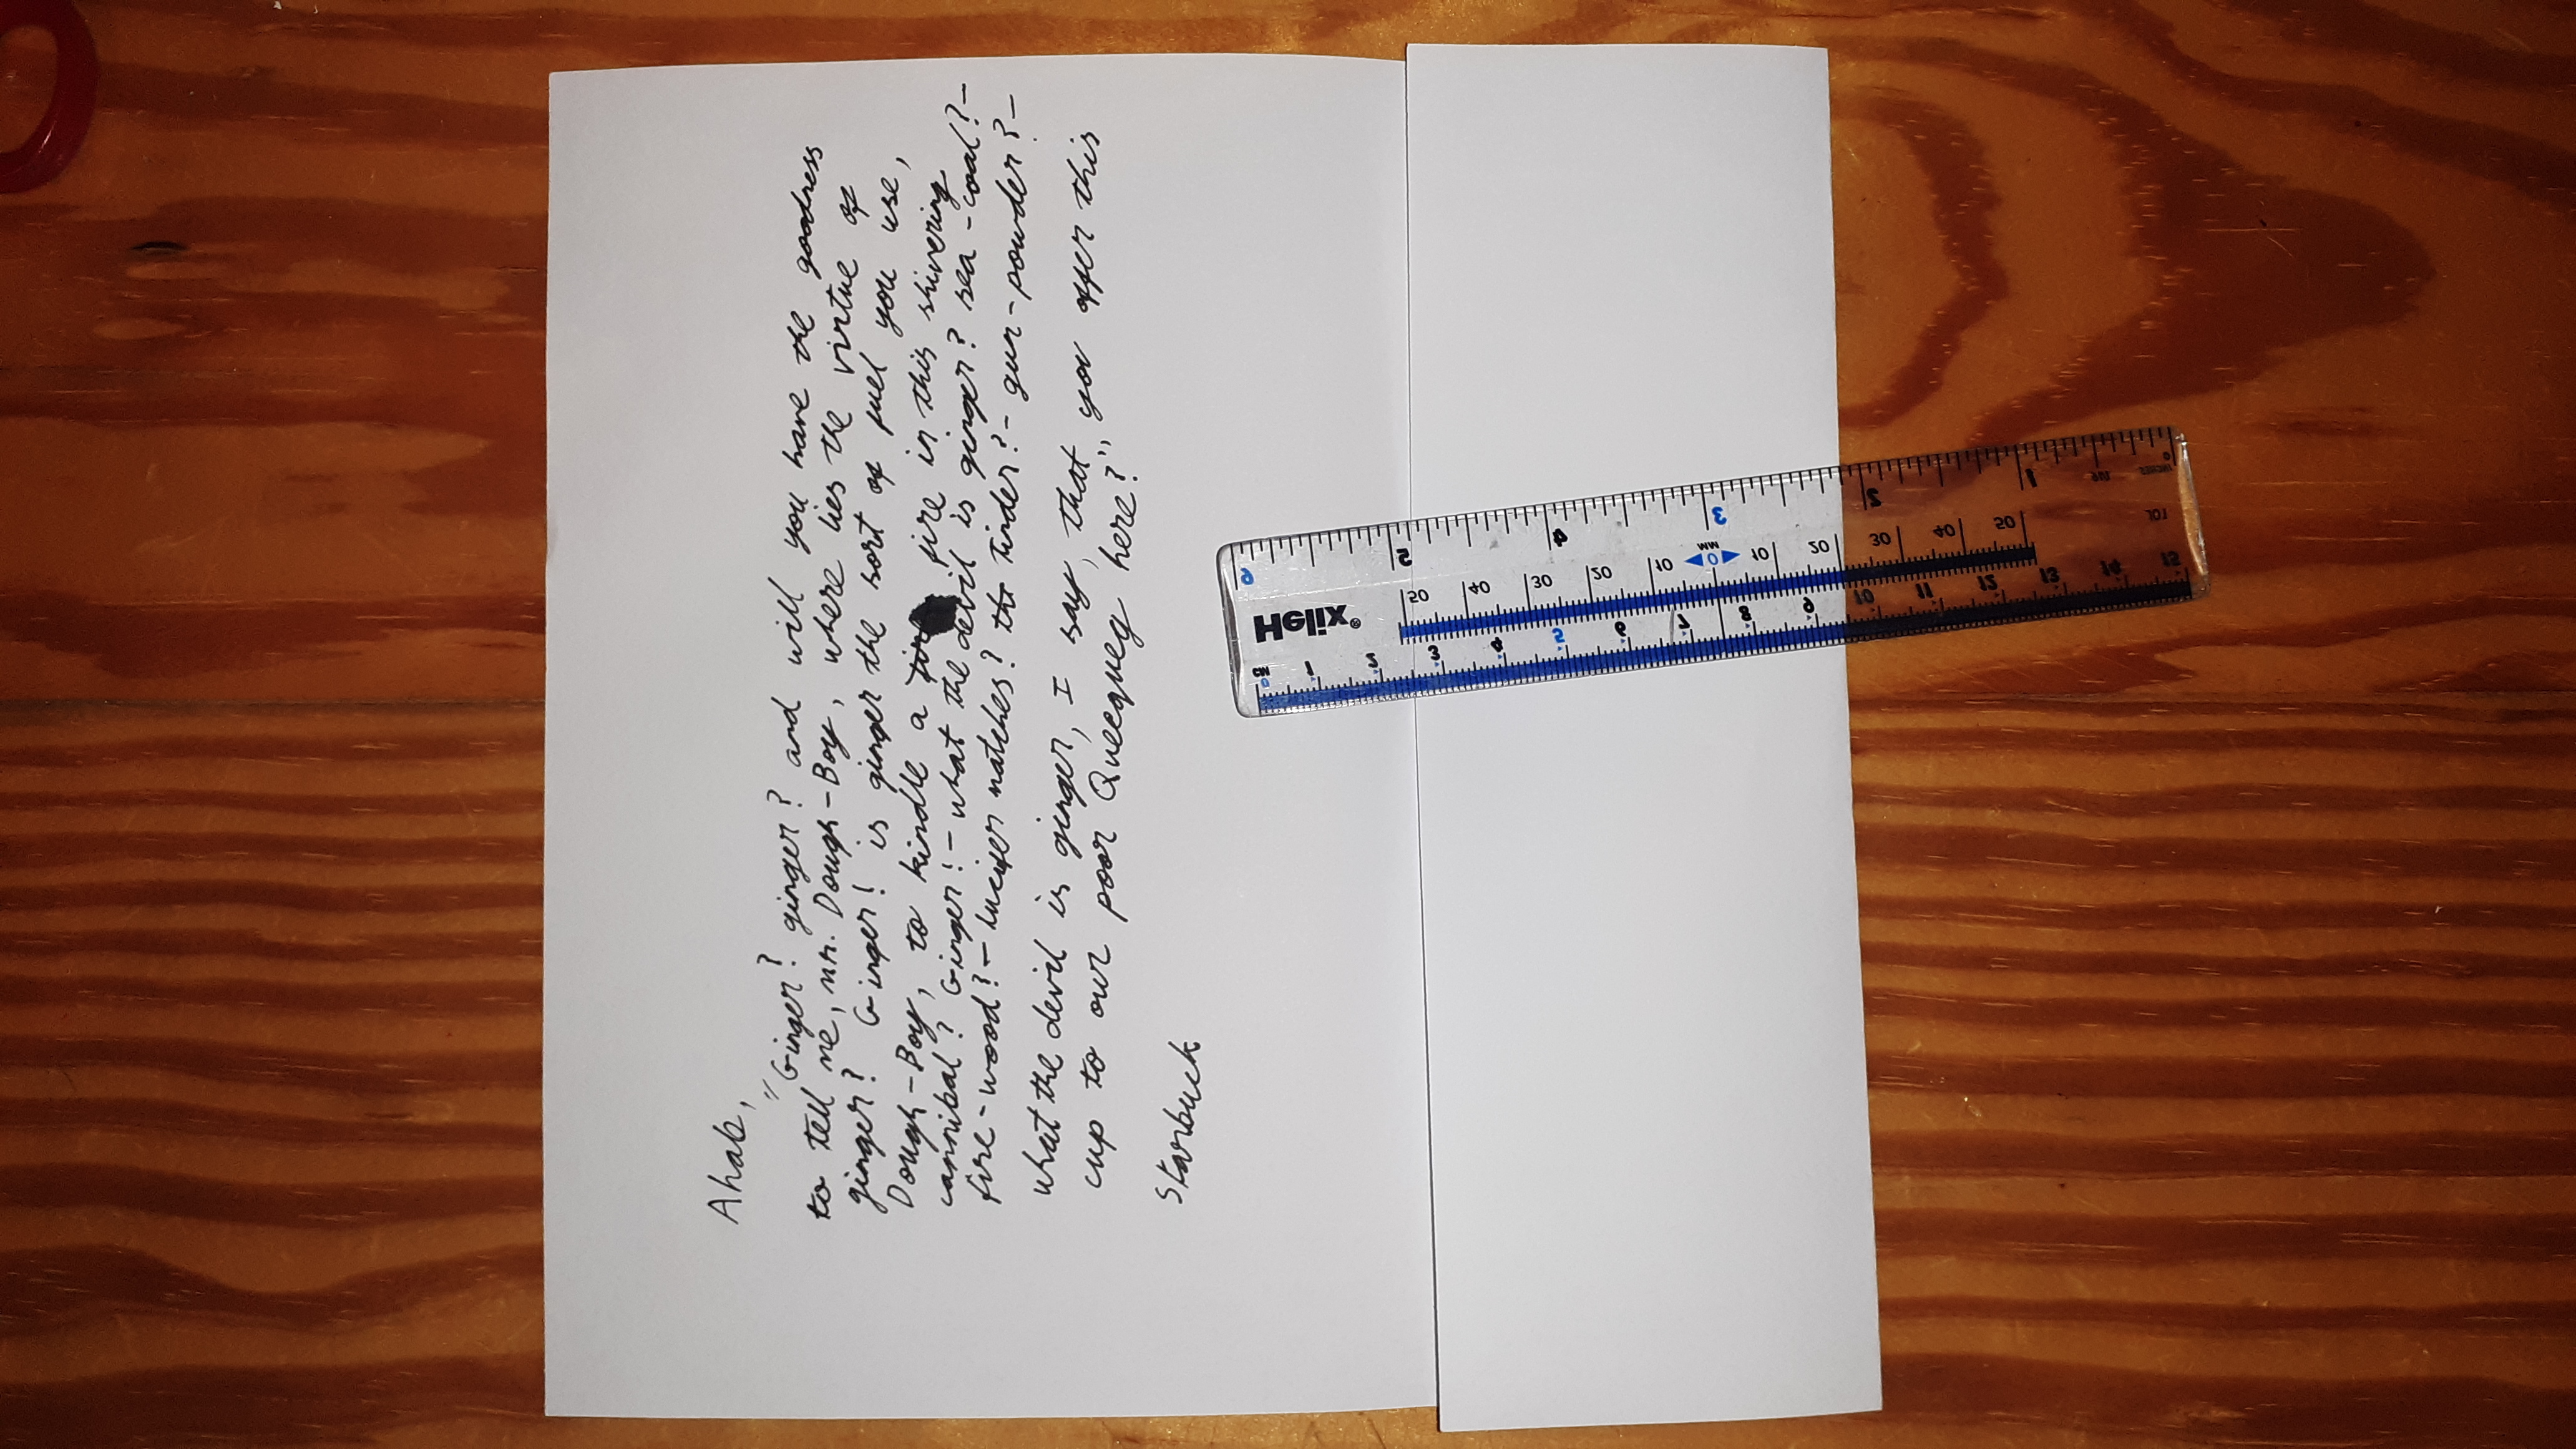 Ahab,
"Ginger? ginger? and will you have the goodness
to tell me, mr. Dough-Boy, where lies the virtue of
ginger? Ginger! is ginger the sort of fuel you use,
Dough-Boy, to kindle a fire in this shivering
cannibal? Ginger!- what the devil is ginger? sea-coal?-
fire-wood?- lucifer matches? tinder?- gun-powder?-
what the devil is ginger, I say, that you offer this
cup to our poor Queequeg here?"
Starbuck
Helix®
6 5 4 3 2 1 0
INCHES
50 40 30 20 10 0 10 20 30 40 50
MM
0 1 2 3 4 5 6 7 8 9 10 11 12 13 14 15